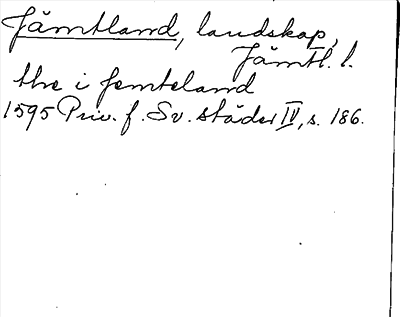 Jämtland, landskap,
Jämtl. l.
thre i femteland
1595 Priv. f. Sv. städer IV, s. 186.